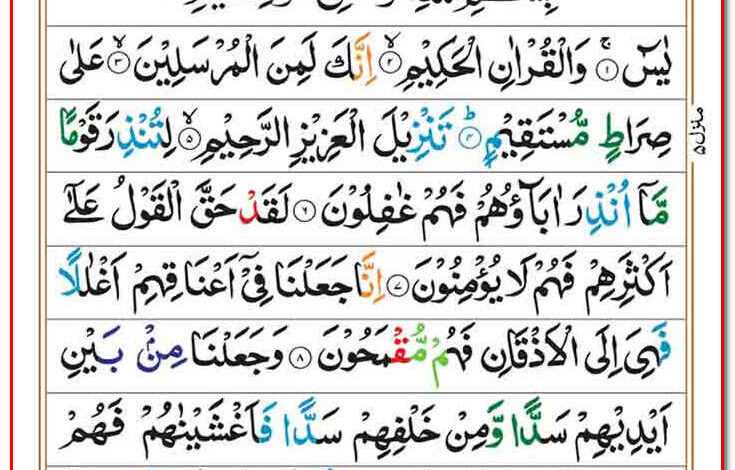 يٰسٓ ۝١ وَالْقُرْاٰنِ الْحَكِيْمِ ۝٢ اِنَّكَ لَمِنَ الْمُرْسَلِيْنَ ۝٣ عَلٰى
صِرَاطٍ مُّسْتَقِيْمٍ ۝٤ تَنْزِيْلَ الْعَزِيْزِ الرَّحِيْمِ ۝٥ لِتُنْذِرَ قَوْمًا
مَّاۤ اُنْذِرَ اٰبَآؤُهُمْ فَهُمْ غٰفِلُوْنَ ۝٦ لَقَدْ حَقَّ الْقَوْلُ عَلٰۤى
اَكْثَرِهِمْ فَهُمْ لَا يُؤْمِنُوْنَ ۝٧ اِنَّا جَعَلْنَا فِيْۤ اَعْنَاقِهِمْ اَغْلٰلًا
فَهِىَ اِلَى الْاَذْقَانِ فَهُمْ مُّقْمَحُوْنَ ۝٨ وَجَعَلْنَا مِنْۢ بَيْنِ
اَيْدِيْهِمْ سَدًّا وَّمِنْ خَلْفِهِمْ سَدًّا فَاَغْشَيْنٰهُمْ فَهُمْ
منزل ۵